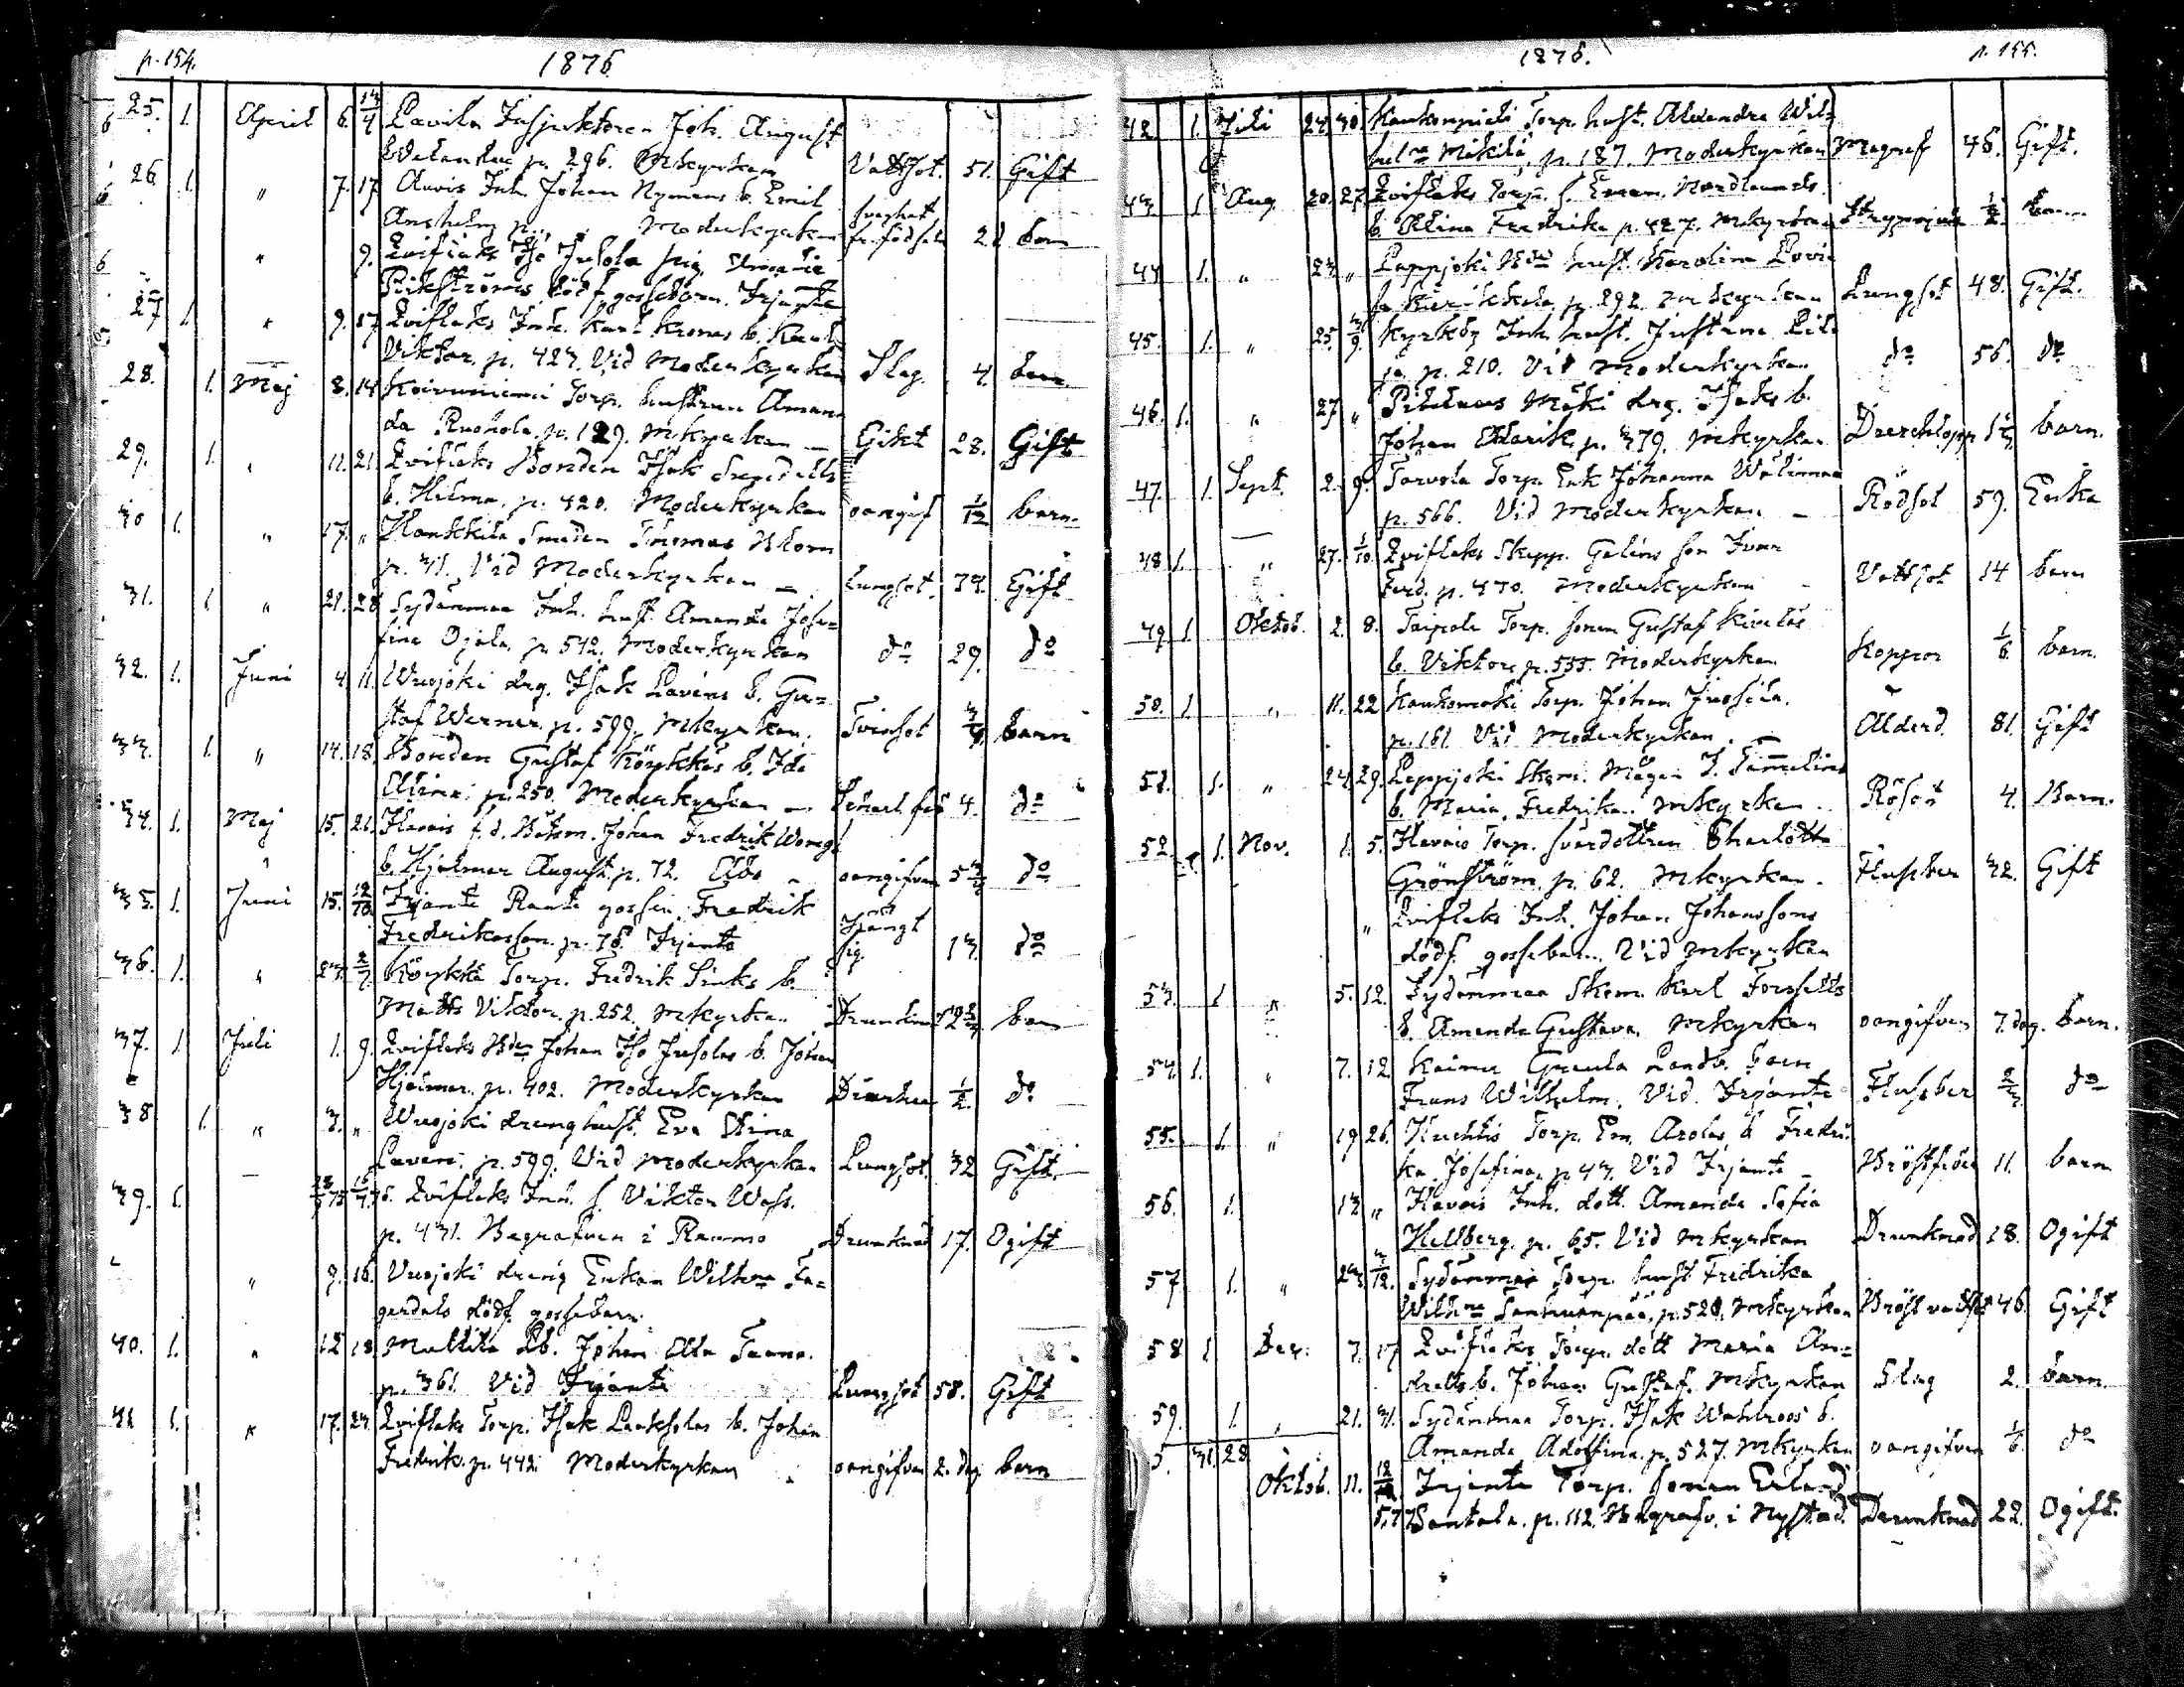 p. 154. 1876
25. 1. April 6. 14/4 Lavila Inspektoren Joh. August
Welander p. 296. Mkyrkan Vattsot. 51. Gift
26. 1. " 7. 17 Anvis Inh. Johan Nymans b. Emil
Anshelm p. Moderkyrkan svaghet fr. födseln 21 barn
" 9. Eviflaks Iso Jusola pig. Amalie
dödf. gossebarn. Irjante
27 1. " 9. 17 Eviflaks Inh. Karl Kronas b. Karl
Viktor, p. 423. Vid Moderkyrkan Slag. 4. barn
28. 1. Maj 8. 14 Koivuniemi Torp. hustrun Aman-
da Ruohola, p. 129. Mkyrkan Gikt 28. Gift
29. 1. " 11. 21. Eviflaks Bonden Isak
b. Hilma, p. 420. Moderkyrkan oangif 1/12 barn.
30 1. " 17. " Hankkila Smeden Thomas Blom
p. 31. Vid Moderkyrkan Lungsot. 34. Gift
31. 1. " 21. 28 Sydänmaa Inh. hust. Amanda Jose-
fina Ojala, p. 542. Moderkyrkan do 29. do
32. 1. Juni 4. 11. Wuojoki drg. Isak Lavens b. Gu-
staf Werner. p. 599. Mkyrkan. Tvinsot 3/4 barn
33. 1. " 14. 18. Bonden Gustaf Köykkäs b. Ida
Elina: p. 250. Moderkyrkan Scharl.feb 4. do
34. 1. Maj 15. 21. Hevois f.d. Båtsm. Johan Fredrik
b. Hjalmar August. p. 72. Åbo oangifven 5 do
35. 1. Juni 15. Irjante Ranta gossen Fredrik
Fredriksson. p. 78. Irjanto Hängt sig. 13. do
36. 1. " 23. 2/7 Köykkä Torp. Fredrik Sinks b.
Matts Viktor. p. 252. Mkyrkan barn
37. 1. Juli 1. 9. Eviflaks Bden Johan Iso Jusolas b. Johan
Hjalmar. p. 402. Moderkyrkan Diarrhea 1/2. do
38 1. " 3. " Wuojoki drenghust. Eva Stina
Laven. p. 599. Vid Moderkyrkan Lungsot. 32 Gift.
39. 1. Eviflaks Inh. s. Viktor Wass.
p. 431. Begrafven i Raumo Drunknad 17. Ogift
" 9. 16. Vuojoki dreng Enkan Wilhna Fa-
gerdals dödf. gossebarn.
40. 1. " 12 18. Mullila Lb. Johan
p. 361 Vid Irjanti Lungsot 58. Gift
41 1. " 17. 23. Eviflaks Torp. Isak Laaksolas b. Johan
Fredrik. p. 442 Moderkyrkan oangifven 2. dag barn
1876. p. 155.
42 1. Juli 24 30. Kaukonpieli Torp. hust. Alexandra Wil-
helna Mikilä, p. 187. Moderkyrkan Magref 46. Gift.
43 1. Aug. 20. 27. Eviflaks Torp. s. Eman. Nordlunds
b. Elina Fredrika p. 427. Mkyrkan Strypsjuk 1/2. barn
44 1. " 23 " Lappjoki Bde hust. Karolina Lovi-
sa p. 292 Mkyrkan Lungsot 48. Gift.
45. 1. " 25. 3/9. Kyrkby Inh. hust. Justina
p. 210. Vid Moderkyrkan do 56. do
46. 1. " 27 " Mäki drg. Isaks b.
Johan Alarik. p. 379. Mkyrkan barn.
47. 1. Sept. 2. 9. Tarvola Torp. Enk Johanna Wälimaa
p. 566. Vid Moderkyrkan Rödsot 59. Enka
48 1. " 27. 1/10. Eviflaks Skepp. Gelins son Ivar
Ferd. p. 430. Moderkyrkan Vattsot 14 barn
49 1. Oktob. 2. 8. Taipale Torp. sonen Gustaf
b. Viktor p. 555. Moderkyrkan Koppor 1/6. barn.
50. 1. " 11. 22 Kaukomäki Torp. Johan Juosila.
p. 161 Vid Moderkyrkan Ålderd. 81. Gift
51. 1. " 24. 29. Lappjoki Skom. Mågen J. Tammelins
b. Maria Fredrika. Mkyrkan. Rösot 4. Barn.
52 1. Nov. 1. 5. Hevois Torp. svärdottren Charlotta
Grönström, p. 62. Mkyrkan. Flussber 32. Gift
" Eviflaks Inh. Johan Johanssons
dödf. gossebarn. Vid Mkyrkan
53. 1. " 5. 12. Sydänmaa Skom. Karl Forssells
b. Amanda Gustava. Mkyrkan oangifven 7. dag. barn.
54. 1. " 7. 12 Kainu Landb. barn
Frans Wilhelm. Vid Irjante Flussber 2/3. do
55. 1. " 19 26. Huhtis Torp. Em. Arolas b. Fredri-
ka Josefina, p. 43. Vid Irjante 11. barn
56. 1. 13 " Hevois Inh. dott. Amanda Sofia
Hellberg. p. 65. Vid Mkyrkan Drunknad 18. Ogift
57. 1. " 23 3/12. Sydänmaa Torp. hust Fredrika
Wilhna p. 520. Mkyrkan 46. Gift
58 1 Dec. 7. 17 Eviflaks Torp. dott Maria
b. Johan Gustaf. Mkyrkan Slag 2. barn.
59. 1. " 21. 31. Sydänmaa Torp. Isak Wahlroos b.
Amanda Adolfina. p. 527. Mkyrkan oangifven 1/6. do
31 28
Oktob. 11. Irjante Torp. sonen Erland
Santala. p. 112. Begrafv. i Nystad. Drunknad 22. Ogift.